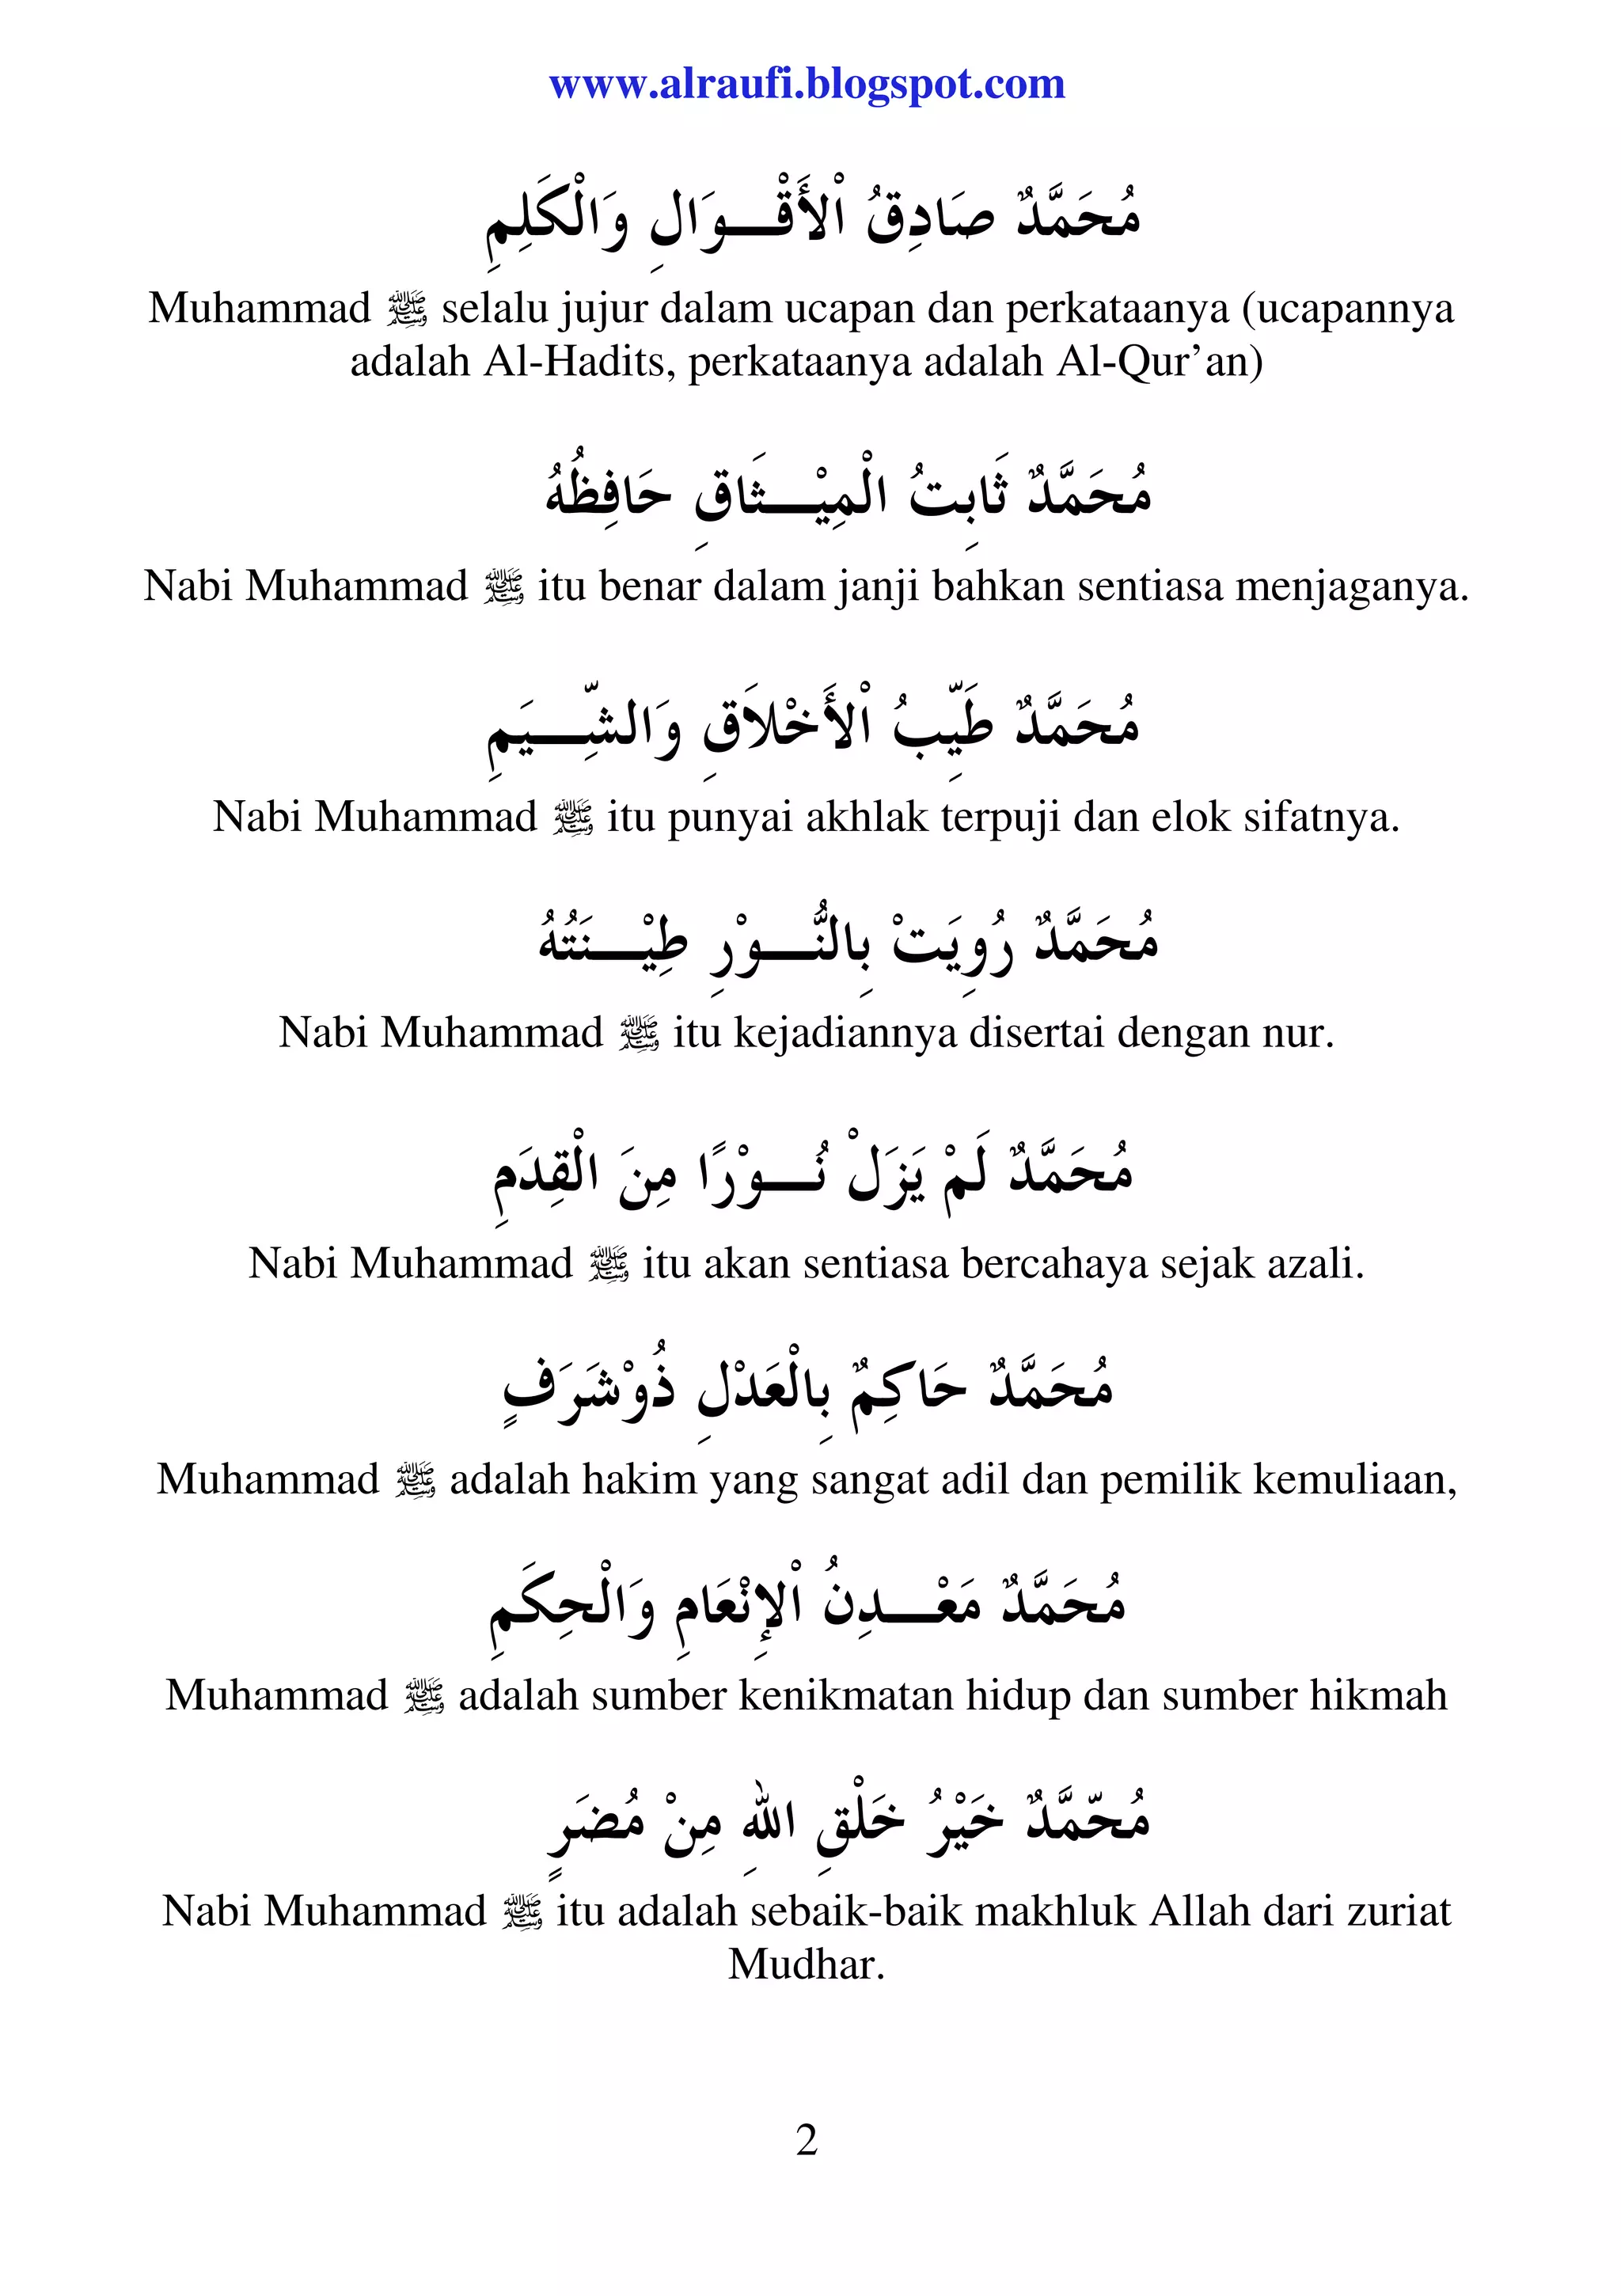 www.alraufi.blogspot.com
مُحَمَّدٌ صَادِقُ اْلأَقْـــوَالِ وَالْكَلِمِ
Muhammad ﷺ selalu jujur dalam ucapan dan perkataanya (ucapannya
adalah Al-Hadits, perkataanya adalah Al-Qur’an)
مُحَمَّدٌ ثَابِتُ الْمِيْـــثَاقِ حَافِظُهُ
Nabi Muhammad ﷺ itu benar dalam janji bahkan sentiasa menjaganya.
مُحَمَّدٌ طَيِّبُ اْلأَخْلاَقِ وَالشِّـــيَمِ
Nabi Muhammad ﷺ itu punyai akhlak terpuji dan elok sifatnya.
مُحَمَّدٌ رُوِيَتْ بِالنُّـــوْرِ طِيْـــنَتُهُ
Nabi Muhammad ﷺ itu kejadiannya disertai dengan nur.
مُحَمَّدٌ لَمْ يَزَلْ نُـــوْرًا مِنَ الْقِدَمِ
Nabi Muhammad ﷺ itu akan sentiasa bercahaya sejak azali.
مُحَمَّدٌ حَاكِمٌ بِالْعَدْلِ ذُوْشَرَفٍ
Muhammad ﷺ adalah hakim yang sangat adil dan pemilik kemuliaan,
مُحَمَّدٌ مَعْـــدِنُ اْلإِنْعَامِ وَالْحِكَمِ
Muhammad ﷺ adalah sumber kenikmatan hidup dan sumber hikmah
مُحّمَّدٌ خَيْرُ خَلْقِ اللهِ مِنْ مُضَرٍ
Nabi Muhammad ﷺ itu adalah sebaik-baik makhluk Allah dari zuriat
Mudhar.
2